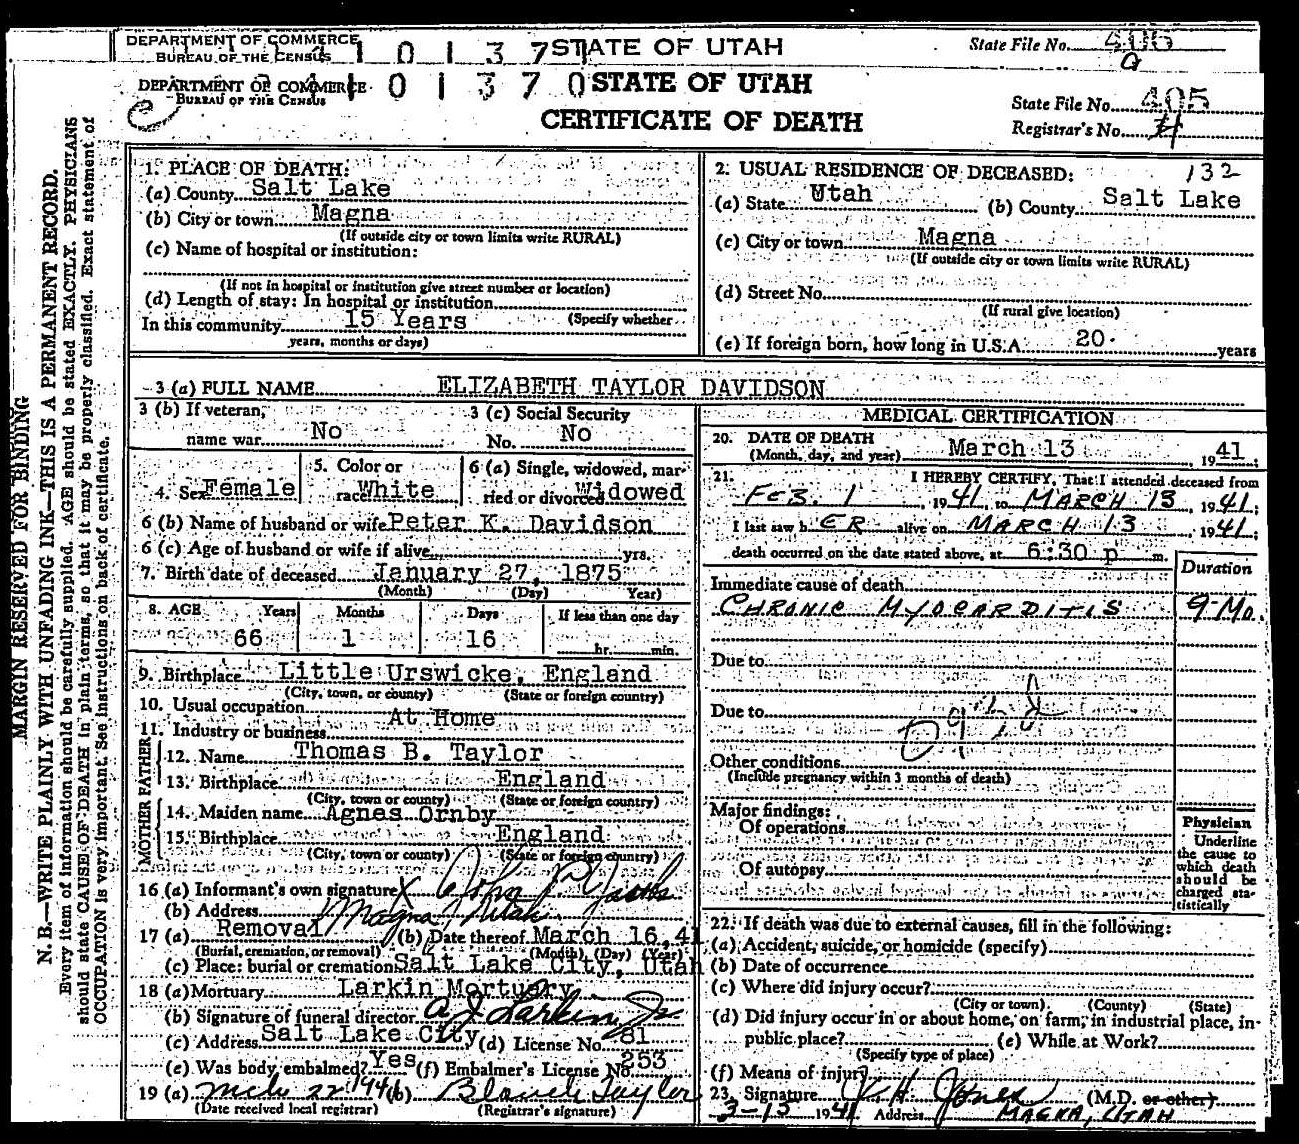 DEPARTMENT OF COMMERCE
BUREAU OF THE CENSUS
STATE OF UTAH
State File No. 406
DEPARTMENT OF COMMERCE
BUREAU OF THE CENSUS
4 1 0 1 3 7 0
STATE OF UTAH
CERTIFICATE OF DEATH
State File No. 405
Registrar's No. H
MARGIN RESERVED FOR BINDING
N. B.—WRITE PLAINLY WITH UNFADING INK—THIS IS A PERMANENT RECORD.
Every item of information should be carefully supplied. AGE should be stated EXACTLY. PHYSICIANS
should state CAUSE OF DEATH in plain terms, so that it may be properly classified. Exact statement of
OCCUPATION is very important. See instructions on back of certificate.
1. PLACE OF DEATH:
(a) County Salt Lake
(b) City or town Magna
(If outside city or town limits write RURAL)
(c) Name of hospital or institution:
(If not in hospital or institution give street number or location)
(d) Length of stay: In hospital or institution
In this community 15 Years (Specify whether
years, months or days)
2. USUAL RESIDENCE OF DECEASED: 132
(a) State Utah (b) County Salt Lake
(c) City or town Magna
(If outside city or town limits write RURAL)
(d) Street No.
(If rural give location)
(e) If foreign born, how long in U.S.A. 20 years
3 (a) FULL NAME ELIZABETH TAYLOR DAVIDSON
3 (b) If veteran, name war No
3 (c) Social Security No. No
4. Sex Female
5. Color or race White
6 (a) Single, widowed, married or divorced Widowed
6 (b) Name of husband or wife Peter K. Davidson
6 (c) Age of husband or wife if alive yrs.
7. Birth date of deceased January 27, 1875
(Month) (Day) Year)
8. AGE Years Months Days If less than one day
66 1 16 hr. min.
9. Birthplace Little Urswicke, England
(City, town, or county) (State or foreign country)
10. Usual occupation At Home
11. Industry or business
FATHER
12. Name Thomas B. Taylor
13. Birthplace England
(City, town or county) (State or foreign country)
MOTHER
14. Maiden name Agnes Ornby
15. Birthplace England
(City, town or county) (State or foreign country)
16 (a) Informant's own signature X John
(b) Address Magna Utah
17 (a) Removal (b) Date thereof March 16, 41
(Burial, cremation, or removal) (Month) (Day) (Year)
(c) Place: burial or cremation Salt Lake City, Utah
18 (a) Mortuary Larkin Mortuary
(b) Signature of funeral director A J Larkin Jr.
(c) Address Salt Lake City (d) License No. 81
(e) Was body embalmed? Yes (f) Embalmer's License No. 253
19 (a) Mch 22 1941 (b) Blanch Taylor
(Date received local registrar) (Registrar's signature)
MEDICAL CERTIFICATION
20. DATE OF DEATH
(Month, day, and year) March 13, 1941.
21. I HEREBY CERTIFY, That I attended deceased from
FEB. 1, 1941, to MARCH 13, 1941;
I last saw h ER alive on MARCH 13, 1941;
death occurred on the date stated above, at 6:30 p m.
Duration
Immediate cause of death
CHRONIC MYOCARDITIS 9 Mo.
Due to
Due to
Other conditions
(Include pregnancy within 3 months of death)
Major findings:
Of operations
Of autopsy
Physician
Underline
the cause to
which death
should be
charged sta-
tistically
22. If death was due to external causes, fill in the following:
(a) Accident, suicide, or homicide (specify)
(b) Date of occurrence
(c) Where did injury occur?
(City or town) (County) (State)
(d) Did injury occur in or about home, on farm, in industrial place, in-
public place? (e) While at Work?
(Specify type of place)
(f) Means of injury
23. Signature H. Jones (M.D. or other)
3-15 1941 Address MAGNA, UTAH